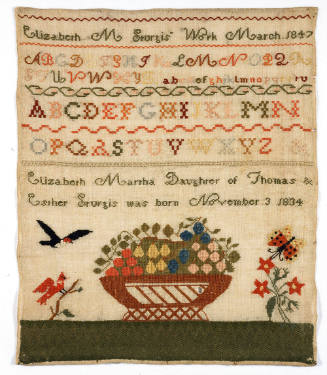 Elizabeth M Sturgis Work March 1847
ABCD FGHI K LMNOPQ
STUVWXY ab efghiklmnopqrstu
ABCDEFGHIJKLMN
OPQRSTUVWXYZ &
Elizabeth Martha Daughter of Thomas &
Esther Sturgis was born November 3 1834